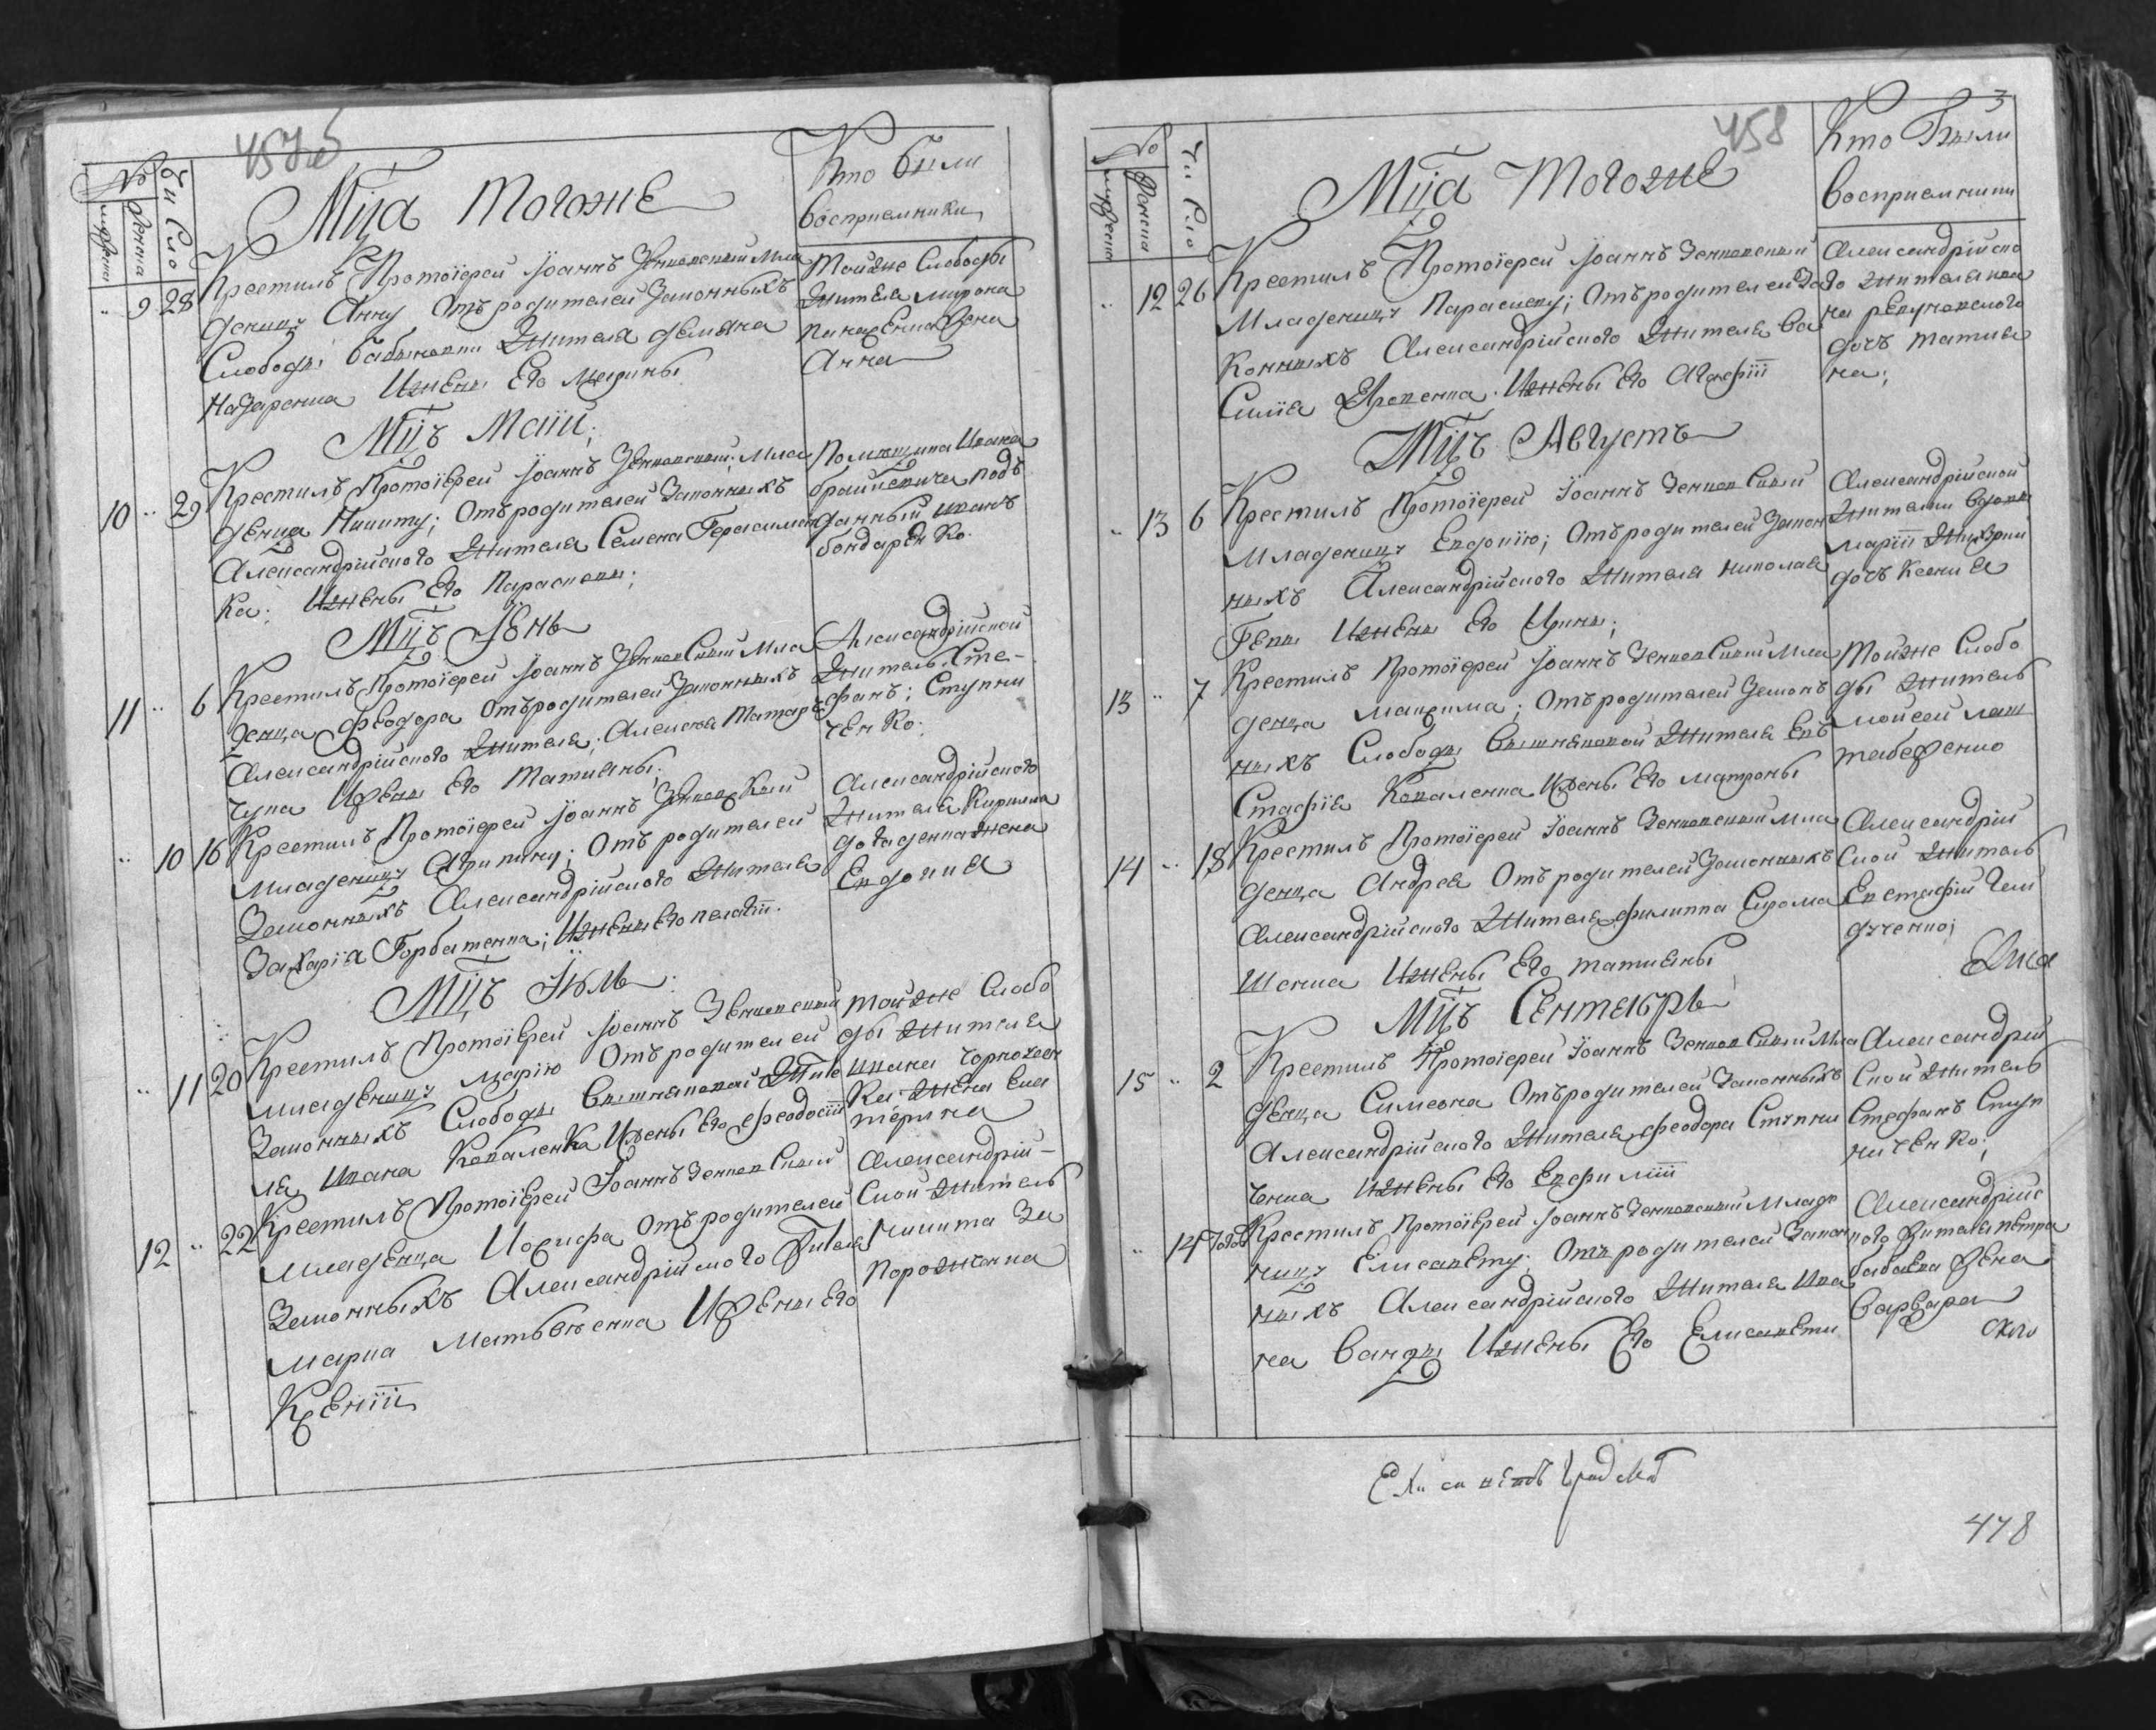 457об
№
мужеска
женска
Число
Мца Тогоже
Кто были
восприемники
9 28
Крестилъ Протоіерей Іоаннъ Зенковскій Мла
деницу Анну Отъ родителей Законныхъ
Слободы Бабенковки Жителя Демяна
Назаренка Ижены Его Марины
Тойже Слободы
Жителя Мирона
Жена
Анна
Мцъ Маій;
10 29
Крестилъ Протоіерей Іоаннъ Зенковскій; Мла
денца Никиту; Отъ родителей Законныхъ
Александрійского Жителя Семена Герасимен
ка; Ижены Его Параскевы;
Помещика Ивана
подъ
данный Иванъ
бондаренко.
Мцъ Іюнь
11 6
Крестилъ Протоіерей Іоаннъ Зенковскій Мла
денца Феодора Отъ родителей Законныхъ
Александрійского Жителя; Алексея Татар
чука Ижены Его Татияны;
Александрійской
Житель Сте-
фанъ; Ступни
ченко.
10 16
Крестилъ Протоіерей Іоаннъ Зенковскій
Младеницу Агрипину; Отъ родителей
Законныхъ Александрійского Жителя
Захарія Горбатенка; Ижены Его Пелагіи.
Александрійского
Жителя Кирилла
жена
Евдокия
Мцъ Іюль
11 20
Крестилъ Протоіерей Іоаннъ Зенковскій
Младеницу Марію Отъ родителей
Законныхъ Слободы Вишняковой Жите
ля Ивана Коваленка Ижены Его Феодосіи
Тойже Слобо
ды Жителя
Ивана
ка Жена Ека
терина
12 22
Крестилъ Протоіерей Іоаннъ Зенковскій
Младенца Иосифа Отъ родителей
Законныхъ Александрійского Жителя
Марка Матвѣенка Ижены Его
Ксеніи
Александрій-
ской Житель
Никита За
порожченка
458
3
№
мужеска
женска
Число
Мца Тогоже
Кто Были
восприемники
12 26
Крестилъ Протоіерей Іоаннъ Зенковскій
Младеницу Параскеву; Отъ родителей За
конныхъ Александрійского Жителя Ва
силія Ефременка Ижены Его Агафіи
Александрійско
го жителя Ива
на
дочь Татия
на;
Мцъ Августъ
13 6
Крестилъ Протоіерей Іоаннъ Зенковскій
Младеницу Евдокію; Отъ родителей Закон
ныхъ Александрійского Жителя Николая
Ижены Его Ирины;
Александрійской
Жителки вдовы
Маріи
дочь Ксения
13 7
Крестилъ Протоіерей Іоаннъ Зенковскій Мла
денца Максима; Отъ родителей Закон
ныхъ Слободы Вишняковой Жителя Ев
стафія Коваленка Ижены Его Матроны
Тойже Слобо
ды Житель
Мойсей Лаш
14 18
Крестилъ Протоіерей Іоаннъ Зенковскій Мла
денца Андрея Отъ родителей Законныхъ
Александрійского Жителя Филиппа Сирома
шенка Ижены Его Татияны
Александрій
ской Житель
Евстафій
Мцъ Сентябрь
15 2
Крестилъ Протоіерей Іоаннъ Зенковскій Мла
денца Симеона Отъ родителей Законныхъ
Александрійского Жителя Феодора Ступни
ченка Ижены Его Евфиміи
Александрій
ской житель
Стефанъ Ступ
ниченко;
14 Тогоже
Крестилъ Протоіерей Іоаннъ Зенковскій Младе
ницу Елисавету; Отъ родителей Закон
ныхъ Александрійского Жителя Ива
на Ижены Его Елисаветы
Александрійс
кого жителя Петра
жена
Варвара
478